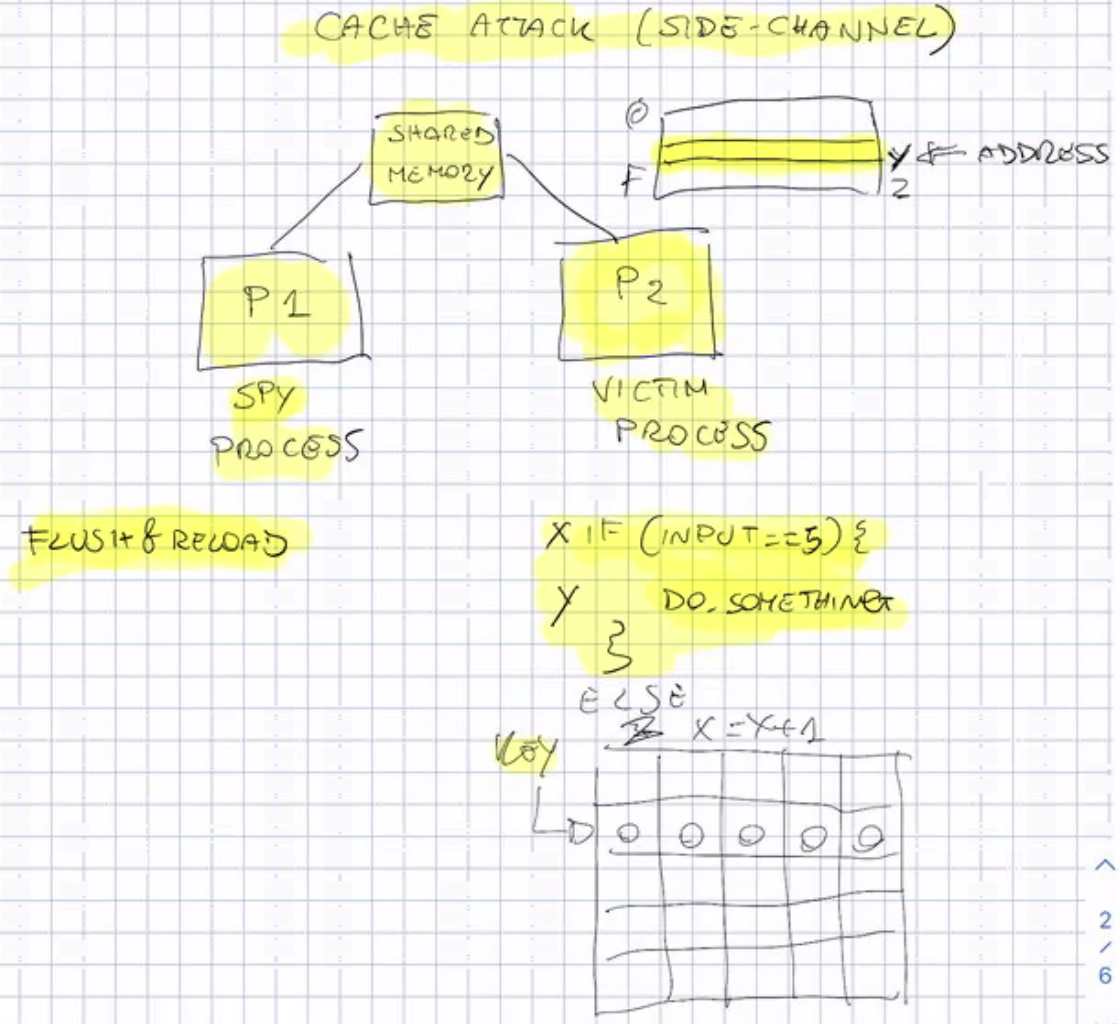 CACHE ATTACK (SIDE-CHANNEL)
SHARED
MEMORY
0
F
Y ⇐ ADDRESS
Z
P1
P2
SPY
PROCESS
VICTIM
PROCESS
FLUSH & RELOAD
X IF (INPUT==5) {
Y DO. SOMETHING
}
ELSE
Z X=X+1
KEY
0 0 0 0 0
^
2
/
6